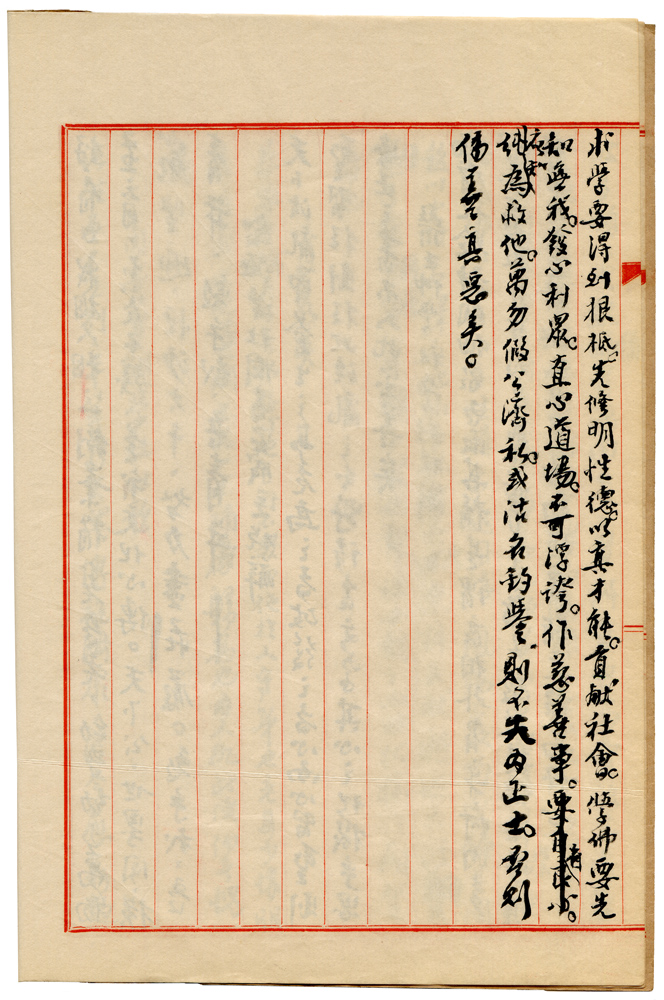 求學要得到根柢。先修明性德。以真才能。貢献社會。學佛要先
知無我。發心利眾。直心道場。不可浮誇。作慈善事。要有良心。
純為救他。萬勿假公濟私。或沽名釣譽。則不失為正士。否則
偽善真惡矣。